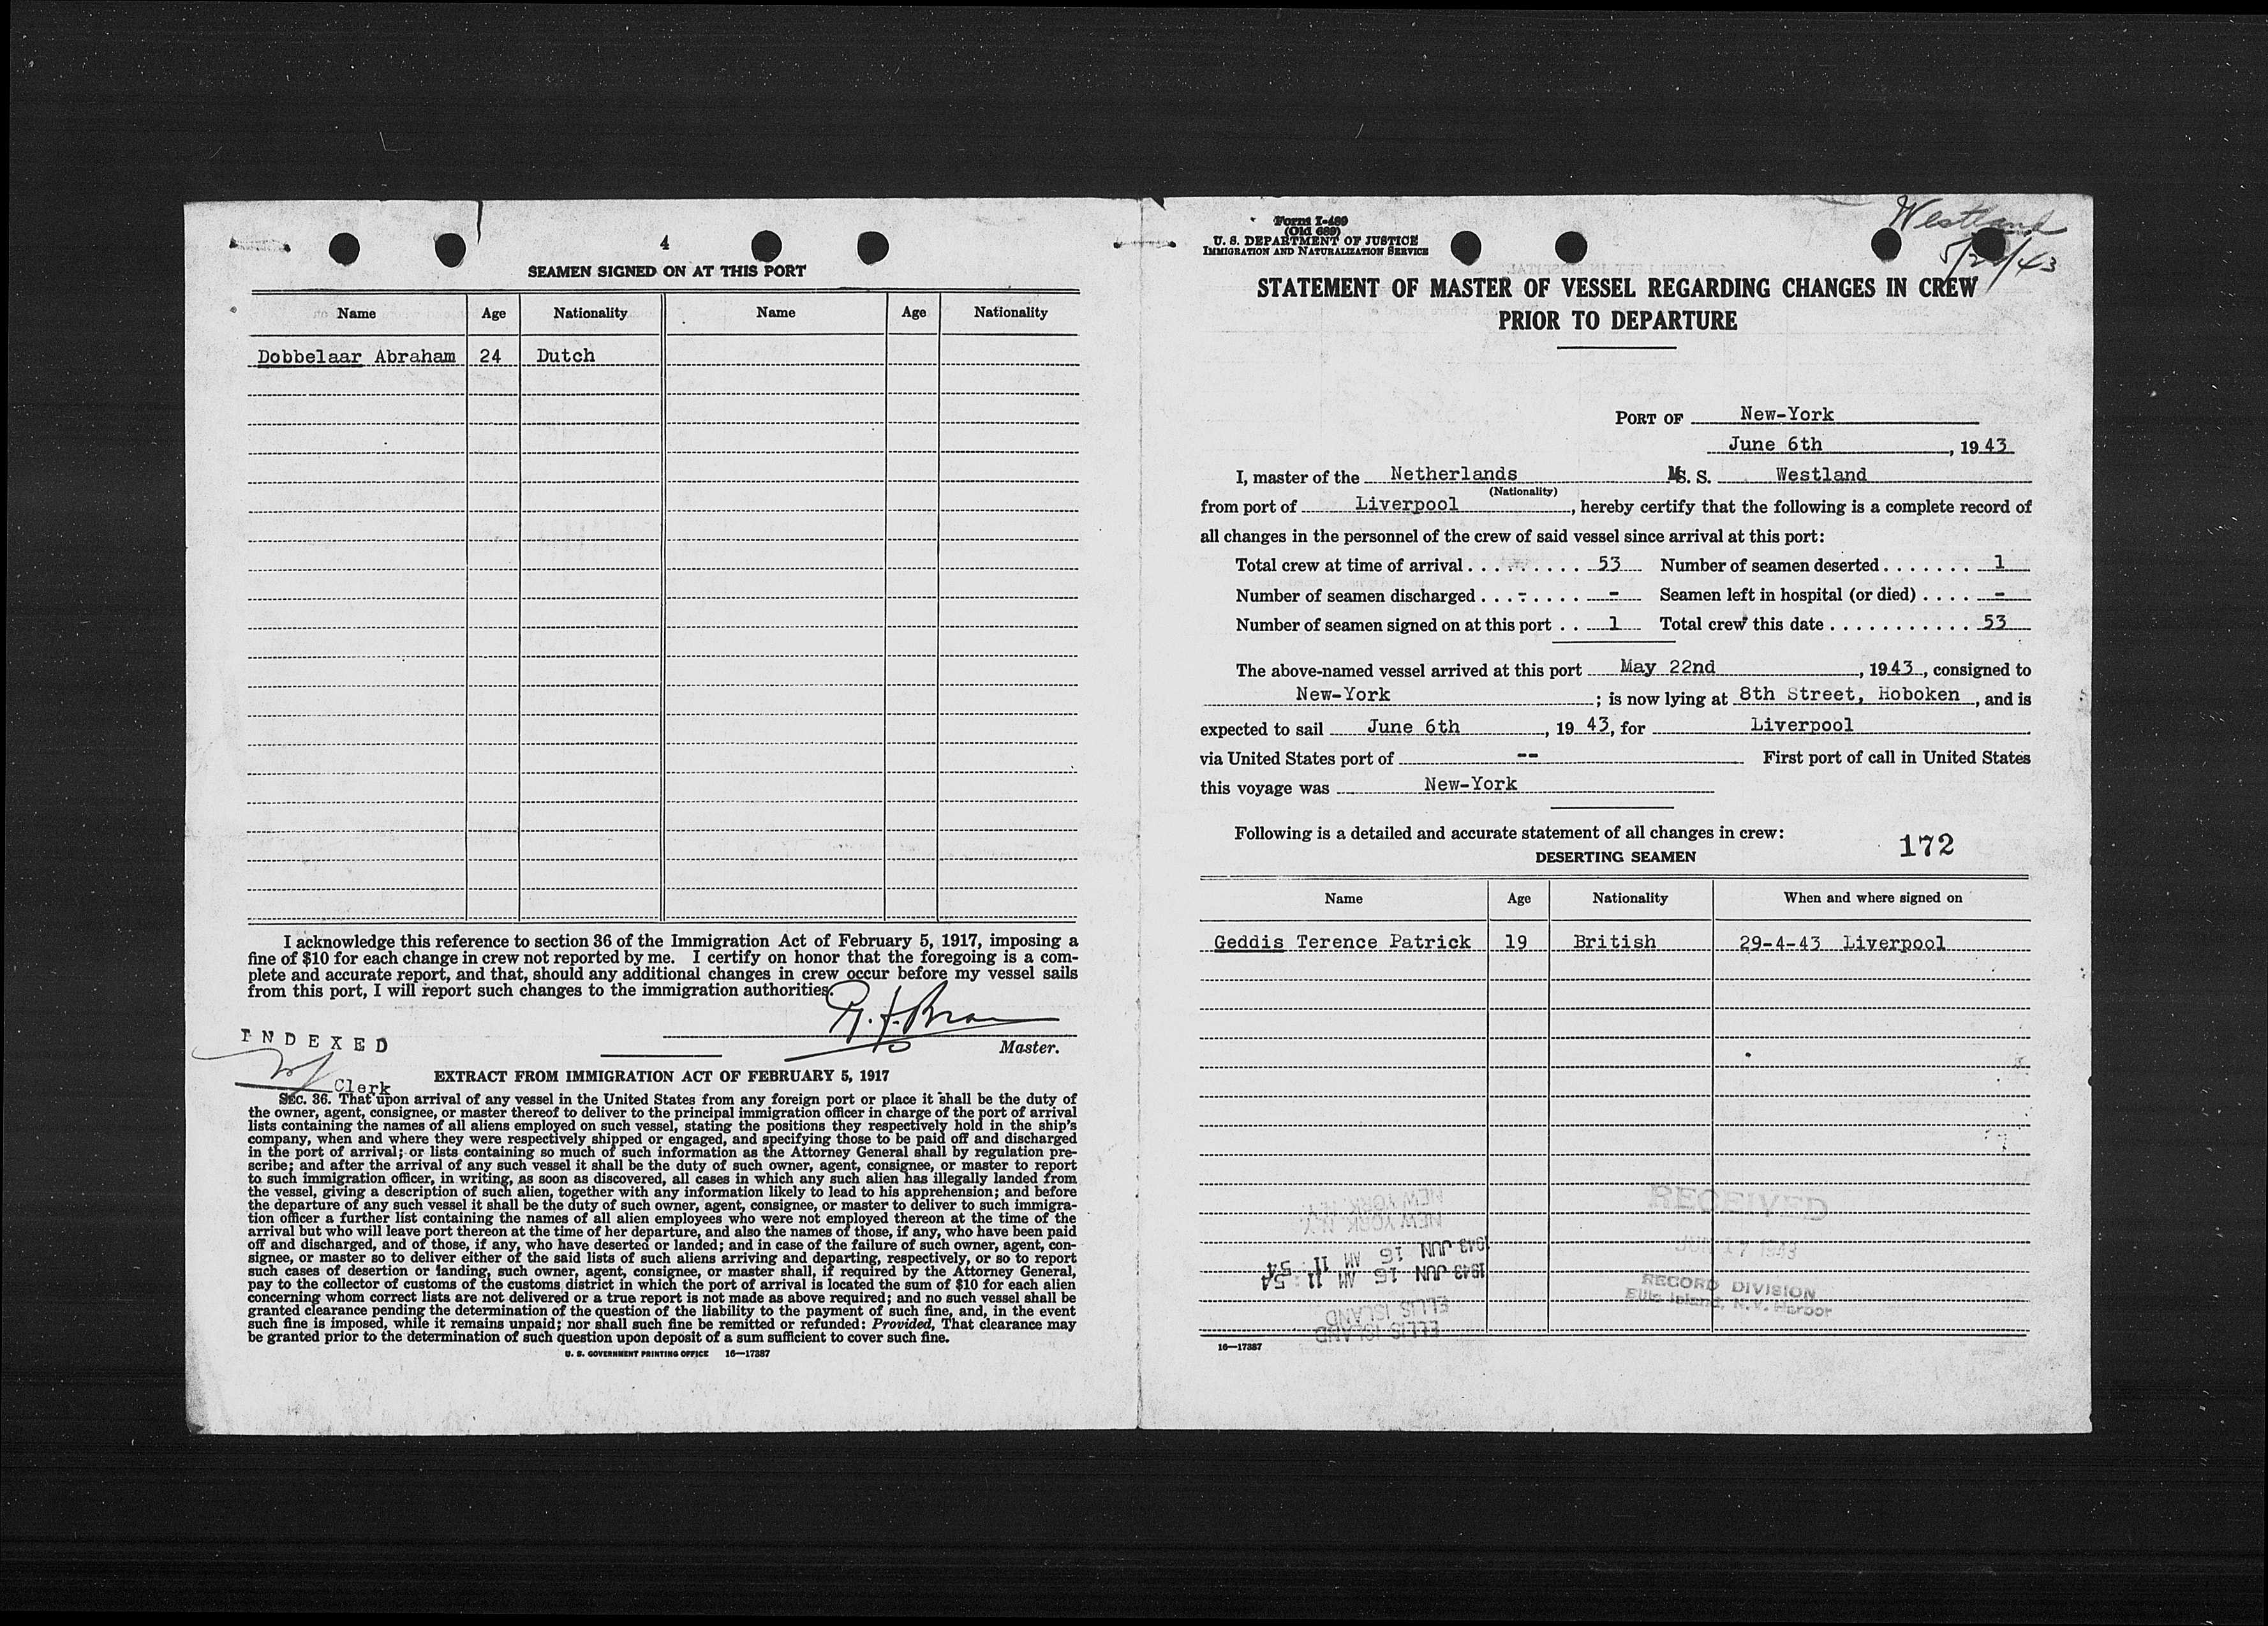 4
SEAMEN SIGNED ON AT THIS PORT
Name Age Nationality Name Age Nationality
Dobbelaar Abraham 24 Dutch
I acknowledge this reference to section 36 of the Immigration Act of February 5, 1917, imposing a
fine of $10 for each change in crew not reported by me. I certify on honor that the foregoing is a com-
plete and accurate report, and that, should any additional changes in crew occur before my vessel sails
from this port, I will report such changes to the immigration authorities.
Master.
INDEXED
Clerk
EXTRACT FROM IMMIGRATION ACT OF FEBRUARY 5, 1917
SEC. 36. That upon arrival of any vessel in the United States from any foreign port or place it shall be the duty of
the owner, agent, consignee, or master thereof to deliver to the principal immigration officer in charge of the port of arrival
lists containing the names of all aliens employed on such vessel, stating the positions they respectively hold in the ship's
company, when and where they were respectively shipped or engaged, and specifying those to be paid off and discharged
in the port of arrival; or lists containing so much of such information as the Attorney General shall by regulation pre-
scribe; and after the arrival of any such vessel it shall be the duty of such owner, agent, consignee, or master to report
to such immigration officer, in writing, as soon as discovered, all cases in which any such alien has illegally landed from
the vessel, giving a description of such alien, together with any information likely to lead to his apprehension; and before
the departure of any such vessel it shall be the duty of such owner, agent, consignee, or master to deliver to such immigra-
tion officer a further list containing the names of all alien employees who were not employed thereon at the time of the
arrival but who will leave port thereon at the time of her departure, and also the names of those, if any, who have been paid
off and discharged, and of those, if any, who have deserted or landed; and in case of the failure of such owner, agent, con-
signee, or master so to deliver either of the said lists of such aliens arriving and departing, respectively, or so to report
such cases of desertion or landing, such owner, agent, consignee, or master shall, if required by the Attorney General,
pay to the collector of customs of the customs district in which the port of arrival is located the sum of $10 for each alien
concerning whom correct lists are not delivered or a true report is not made as above required; and no such vessel shall be
granted clearance pending the determination of the question of the liability to the payment of such fine, and, in the event
such fine is imposed, while it remains unpaid; nor shall such fine be remitted or refunded: Provided, That clearance may
be granted prior to the determination of such question upon deposit of a sum sufficient to cover such fine.
U. S. GOVERNMENT PRINTING OFFICE 16—17387
Westland
Form I-489
(Old 689)
U. S. DEPARTMENT OF JUSTICE
IMMIGRATION AND NATURALIZATION SERVICE
STATEMENT OF MASTER OF VESSEL REGARDING CHANGES IN CREW
PRIOR TO DEPARTURE
PORT OF New-York
June 6th, 1943
I, master of the Netherlands M.S. Westland
(Nationality)
from port of Liverpool, hereby certify that the following is a complete record of
all changes in the personnel of the crew of said vessel since arrival at this port:
Total crew at time of arrival . . . . . . . . . 53 Number of seamen deserted . . . . . . . 1
Number of seamen discharged . . . - . . . . - Seamen left in hospital (or died) . . . . -
Number of seamen signed on at this port . . 1 Total crew this date . . . . . . . . . . . 53
The above-named vessel arrived at this port May 22nd, 1943, consigned to
New-York; is now lying at 8th Street, Hoboken, and is
expected to sail June 6th, 1943, for Liverpool
via United States port of -- First port of call in United States
this voyage was New-York
Following is a detailed and accurate statement of all changes in crew:
172
DESERTING SEAMEN
Name Age Nationality When and where signed on
Geddis Terence Patrick 19 British 29-4-43 Liverpool
RECEIVED
NEW YORK, N.Y.
NEW YORK, N.Y.
1943 JUN 16 AM 11 54
1943 JUN 16 AM 11 54
ELLIS ISLAND
ELLIS ISLAND
RECORD DIVISION
Ellis Island, N.Y. Harbor
16—17387